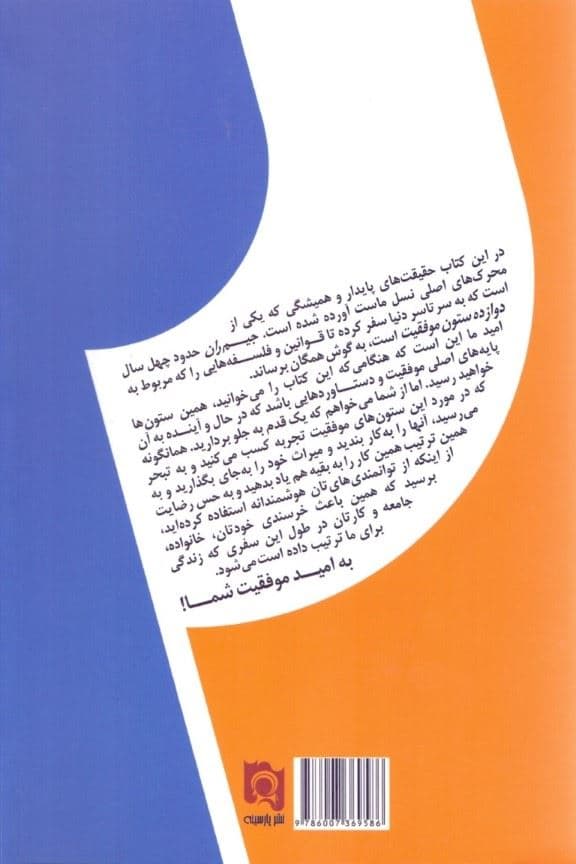 در این کتاب حقیقت‌های پایدار و همیشگی که یکی از
محرک‌های اصلی نسل ماست آورده شده است. جیم ران حدود چهل سال
است که به سر تاسر دنیا سفر کرده تا قوانین و فلسفه‌هایی را که مربوط به
دوازده ستون موفقیت است، به گوش همگان برساند.
امید ما این است که هنگامی‌که این کتاب را می‌خوانید، همین ستون‌ها
پایه‌های اصلی موفقیت و دستاوردهایی باشد که در حال و آینده به آن
خواهید رسید. اما از شما می‌خواهم که یک قدم به جلو بردارید. همانگونه
که در مورد این ستون‌های موفقیت تجربه کسب می‌کنید و به تبحر
می‌رسید، آنها را به‌کار بندید و میراث خود را به‌جای بگذارید و به
همین ترتیب همین کار را به بقیه هم یاد بدهید و به حس رضایت
از اینکه از توانمندی‌های‌تان هوشمندانه استفاده کرده‌اید،
برسید که همین باعث خرسندی خودتان، خانواده،
جامعه و کارتان در طول این سفری که زندگی
برای ما ترتیب داده است می‌شود.
به امید موفقیت شما!
نشر پارسینه
9 786007 369586